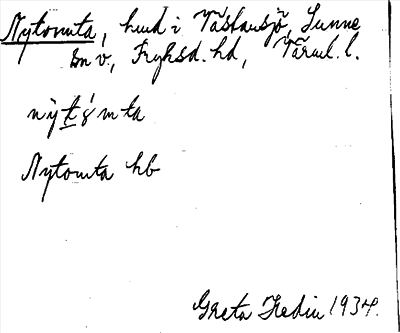 Nytomta, hmd i Västansjö, Sunne
sn v, Fryksd. hd, Värml. l.
nỳt̲ǿmta
Nytomta hb
Greta Hedin 1934.